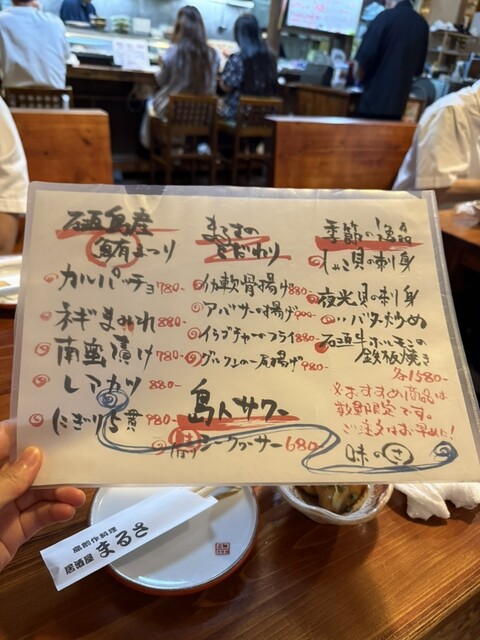 石垣島産
鮪まつり
カルパッチョ 780-
ネギまみれ 880-
南蛮漬け 780-
レアカツ 880-
にぎり5貫 980-
まるさの
こだわり
イカ軟骨揚げ 880-
アバサーの揚げ 900-
イラブチャーのフライ 880-
グルクンの唐揚げ 980-
島人サワー
シークヮーサー 680-
季節の逸品
しゃこ貝の刺身
夜光貝の刺身
〃 バター炒め
石垣牛ホルモンの
鉄板焼き
各1580-
※おすすめ商品は
数量限定です。
ご注文はお早めに!
味のさ
島創作料理
居酒屋 まるさ